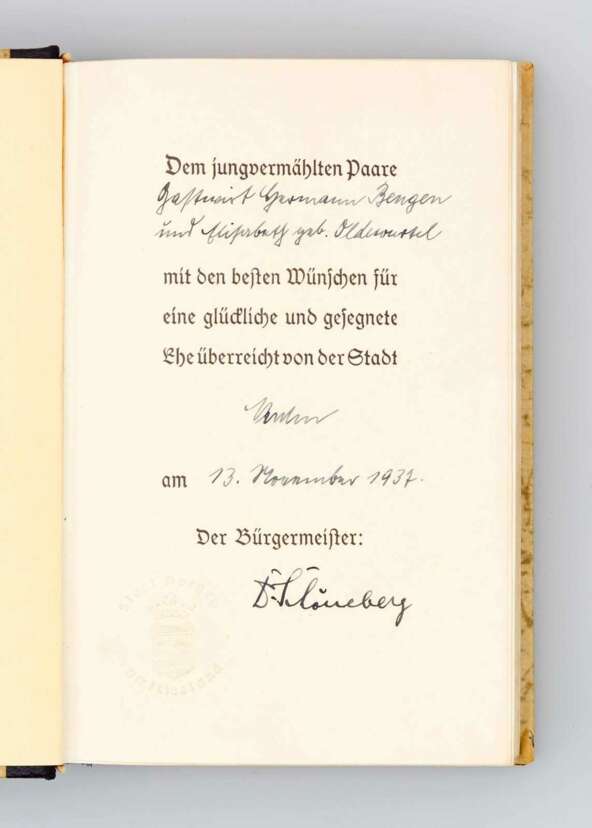 Dem jungvermählten Paare
Gastwirt Hermann Bengen
und Elisabeth geb. Oldewurtel
mit den besten Wünschen für
eine glückliche und gesegnete
Ehe überreicht von der Stadt
Norden
am 13. November 1937.
Der Bürgermeister:
Schöneberg
Stadt Norden